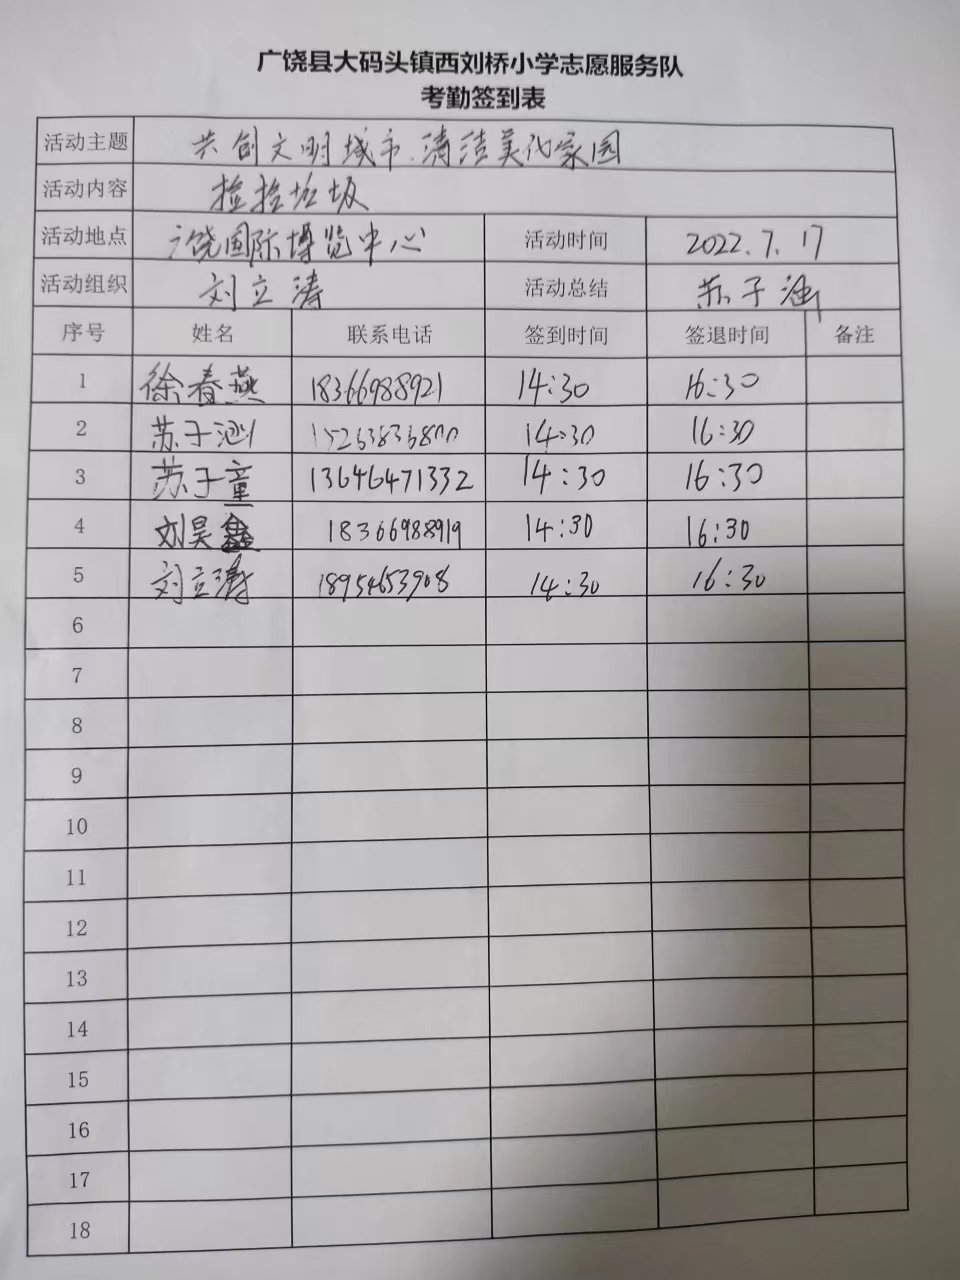 广饶县大码头镇西刘桥小学志愿服务队
考勤签到表
活动主题 共创文明城市.清洁美化家园
活动内容 捡拾垃圾
活动地点 广饶国际博览中心 活动时间 2022.7.17
活动组织 刘立涛 活动总结 苏子涵
序号 姓名 联系电话 签到时间 签退时间 备注
1 徐春燕 18366988921 14:30 16:30
2 苏子涵 14:30 16:30
3 苏子童 13646471332 14:30 16:30
4 刘昊鑫 18366988919 14:30 16:30
5 刘立涛 18954653908 14:30 16:30
6
7
8
9
10
11
12
13
14
15
16
17
18